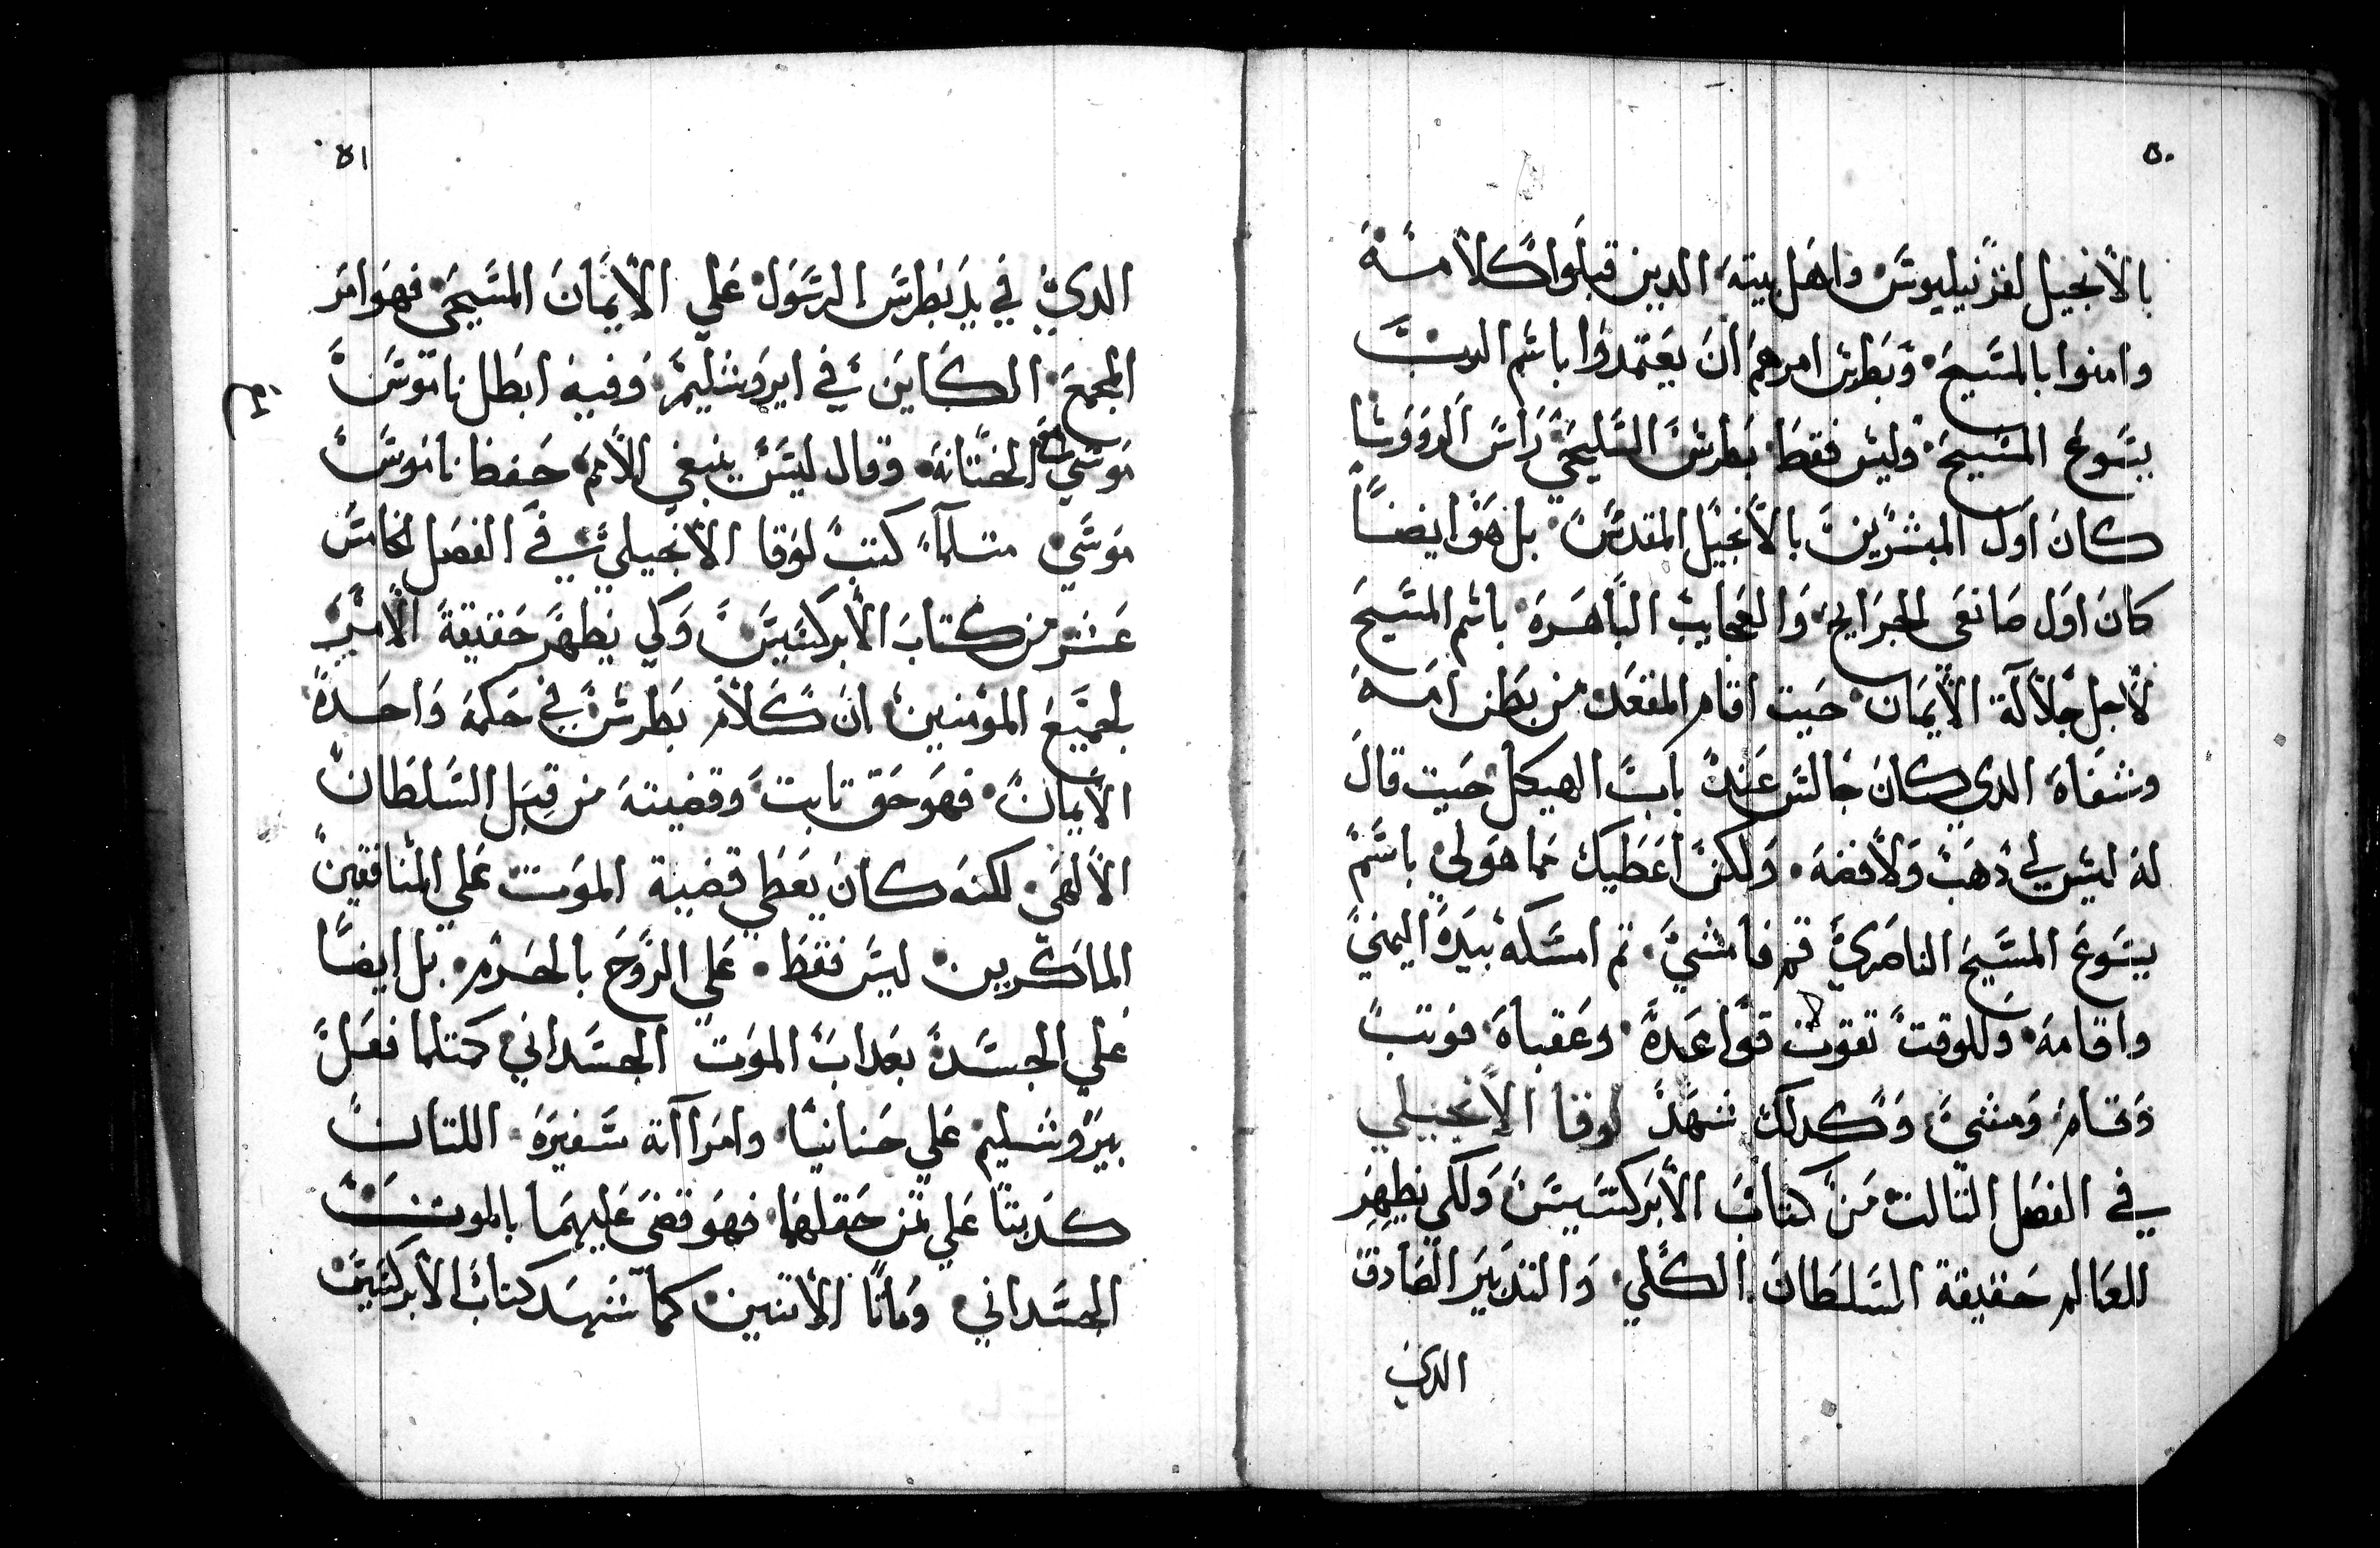 ٥٠
بالانجيل لقرنيليوس واهل بيته الدين قبلوا كلامه
وامنوا بالمسيح وبطرس امرهم ان يعتمدوا باسم الرب
يسوع المسيح وليس فقط بطرس السليحي راس الروورسا
كان اول المبشرين بالانجيل المقدس بل هو ايضا
كان اول صانعى الجرايح والعجايب الباهره باسم المسيح
لاجل جلالة الايمان حيت اقام المقعد من بطن امه
وشفاه الدي كان جالس عند باب الهيكل حيت قال
له ليس لي دهب ولافضه ولكن اعطيك مما هو لي باسم
يسوع المسيح الناصري قم فامشي تم امسكه بيده اليمني
واقامه وللوقت تقوت قواعده وعقباه فوتب
وقام ومشي وكدلك شهد لوقا الانجيلي
في الفصل التالت من كتاب الابركسيس ولكي يظهر
للعالم حقيقة السلطان الكلي والتدبير الصادق
الدي
٥١
الدي في يد بطرس الرسول علي الايمان المسيحي فهو امر
المجمع الكاين في ايروشليم وفيه ابطل ناموس
موسي الختانه وقال ليس ينبغي للامم حفظ ناموس
موسي متلما كتب لوقا الانجيلي في الفصل الخامس
عشر من كتاب الابركسيس وكي يظهر حقيقة الامر
لجميع المؤمنين ان كلام بطرس في حكمه واحدة
الايمان فهو حق تابت وقضيته من قبل السلطان
الالهي لكنه كان يعطي قضية الموت علي المنافقين
الماكرين ليس فقط علي الروح بالحرم بل ايضا
علي الجسد بعداب الموت الجسداني كمتلما فعل
بيروشليم علي حنانيا وامرااته سفيره اللتان
كدبتا علي تمن حقلهما فهو قضي عليهما بالموت
الجسداني وماتا الاتنين كما شهد كتاب الابركسيس